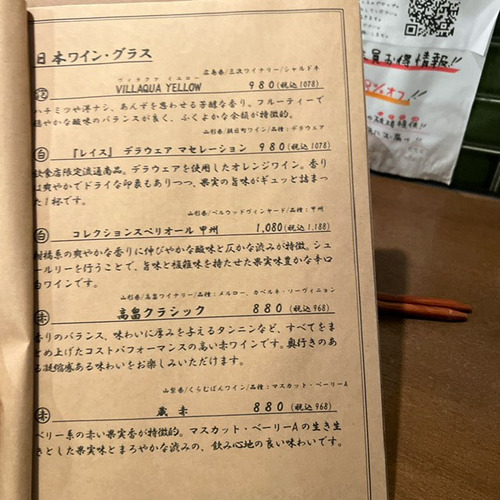 日本ワイン・グラス
広島県/三次ワイナリー/シャルドネ
ヴィラクア イエロー
VILLAQUA YELLOW 980(税込1078)
ハチミツや洋ナシ、あんずを思わせる芳醇な香り。フルーティーで
穏やかな酸味のバランスが良く、ふくよかな余韻が特徴的。
山形県/朝日町ワイン/品種:デラウェア
白 『レイス』デラウェア マセレーション 980(税込1078)
飲食店限定流通商品。デラウェアを使用したオレンジワイン。香り
は爽やかでドライな印象もありつつ、果実の旨味がギュッと詰まっ
た1杯です。
山形県/ベルウッドヴィンヤード/品種:甲州
白 コレクションスペリオール 甲州 1,080(税込1,188)
柑橘系の爽やかな香りに伸びやかな酸味と仄かな渋みが特徴。シュ
ールリーを行うことで、旨味と複雑味を持たせた果実味豊かな辛口
白ワインです。
山形県/高畠ワイナリー/品種:メルロー、カベルネ・ソーヴィニョン
赤 高畠クラシック 880(税込968)
香りのバランス、味わいに厚みを与えるタンニンなど、すべてをま
とめ上げたコストパフォーマンスの高い赤ワインです。奥行きのあ
る凝縮感ある味わいをお楽しみいただけます。
山梨県/くらむぼんワイン/品種:マスカット・ベーリーA
赤 蔵 赤 880(税込968)
ベリー系の赤い果実香が特徴的。マスカット・ベーリーAの生き生
きとした果実味とまろやかな渋みの、飲み心地の良い味わいです。
員お得情報!!
%オフ!